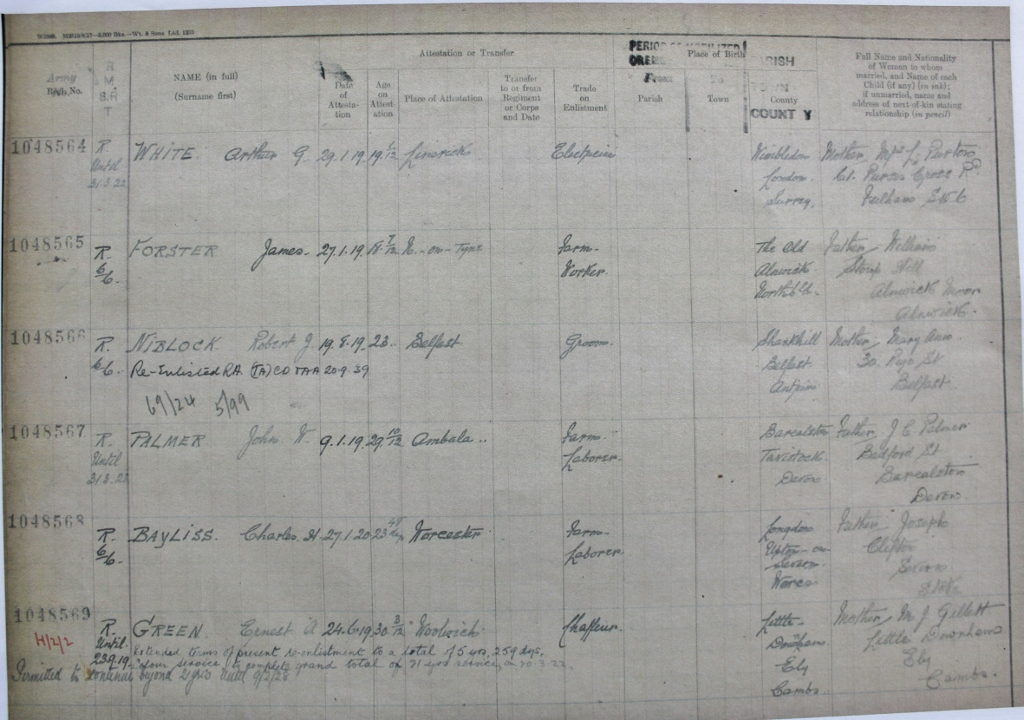 Attestation or Transfer
PERIOD OF MOBILIZED
Place of Birth
PARISH
TOWN
COUNTY
From
Army Regtl. No.
R M S R T
NAME (in full)
(Surname first)
Date of Attestation
Age on Attestation
Place of Attestation
Transfer to or from Regiment or Corps and Date
Trade on Enlistment
Parish
Town
County
Full Name and Nationality
of Women to whom
married, and Name of each
Child (if any) (in ink);
if unmarried, name and
address of next-of-kin stating
relationship (in pencil)
1048564 R WHITE Arthur G. 29.1.19 19 Limerick Wimbledon Mother
Until London
31.3.22 Surrey, Fulham S.W.6
1048565 R. FORSTER James. 27.1.19 N-on-Tyne Farm- The Old Father William
6/6. Worker. Alnwick
Alnwick Moor
Alnwick.
1048566 R. NIBLOCK Robert J. 19.8.19 23. Belfast Groom Shankhill Mother Mary Ann
6/6. Re-Enlisted RA (TA) 20 9 39 Belfast 30. St
69/24 5/99 Antrim Belfast
1048567 R. PALMER John W. 9.1.19 29 10/12 Ambala.. Farm Berealston Father J C Palmer
Until Laborer. Tavistock Bedford St
Devon Berealston
Devon
1048568 R. BAYLISS. Charles H 27.1.20 23 Worcester Farm Longdon Father Joseph
6/6. Laborer. Upton-on-
Severn
Worcs
1048569 R. GREEN Ernest A 24.6.19 30 3/12 Woolwich Chaffeur. Little- Mother M J Gillett
H/2/2 Until Downham Little Downham
23.9.19 Extended terms of present re-enlistment to a total of 5 yrs, 259 days, Ely Ely
Colour service to complete grand total of 21 yrs service on 10.3.22. Cambs. Cambs.
Permitted to continue beyond 21 yrs until 9/2/28